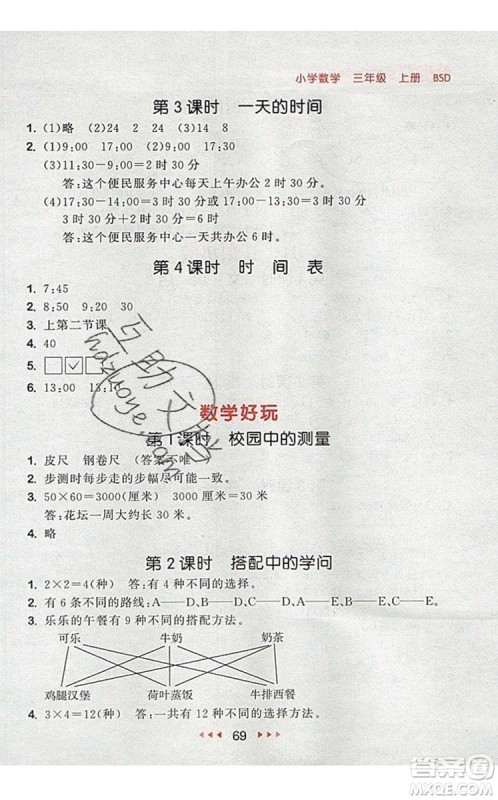 小学数学 三年级 上册 BSD
第3课时 一天的时间
1. (1)略 (2)24 2 (3)14 8
2. (1)9:00 17:30 (2)9:00 17:30
(3)11:30-9:00=2时30分
答:这个便民服务中心每天上午办公2时30分。
(4)17:30-13:30=4时 或17:00-13:30=3时30分
3时30分+2时30分=6时
答:这个便民服务中心一天共办公6时。
第4课时 时 间 表
1. 7:45
2. 8:50 9:20 30
3. 上第二节课
4. 40
5. □ ☑ □
6. 13:00 13:10
数学好玩
第1课时 校园中的测量
1. 皮尺 钢卷尺 (答案不唯一)
2. 步测时每步走的步幅尽可能一致。
3. 50×60=3000(厘米) 3000厘米=30米
答:花坛一周大约长30米。
4. 略
第2课时 搭配中的学问
1. 2×2=4(种) 答:有4种不同的选择。
2. 有6条不同的路线:A——D、A——E、B——D、B——E、C——D、C——E。
3. 乐乐的午餐有9种不同的搭配方法。
可乐 牛奶 奶茶
鸡腿汉堡 荷叶蒸饭 牛排西餐
4. 3×4=12(种) 答:一共有12种不同的选择。
69
互助文库
hdzuoye.com
作业帮